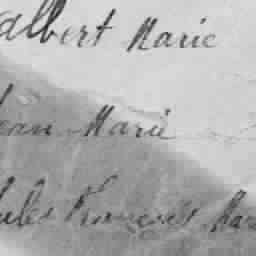 albert Marie
ean Marie
ules François Mar